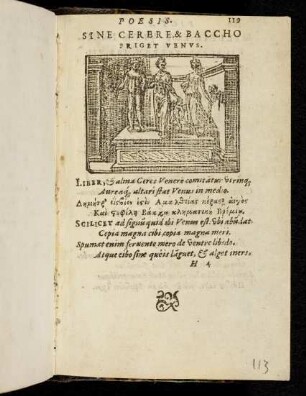 POESIS. 119
SINE CERERE & BACCHO
FRIGET VENVS.
LIBER, & alma Ceres Venerē comitātur utrinq;
Aureaq; altari stat Venus in medio.
SCILICET ad signū quid ubi Venus est. Vbi abūdat
Copia magna cibi, copia magna meri.
Spumat enim feruente mero de uentre libido.
Atque cibo sine queis lāguet, & alget iners.
H 4
113